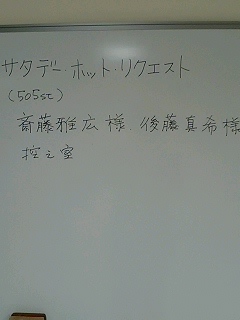 サタデー・ホット・リクエスト
(505st)
斎藤雅広様 後藤真希様
控え室